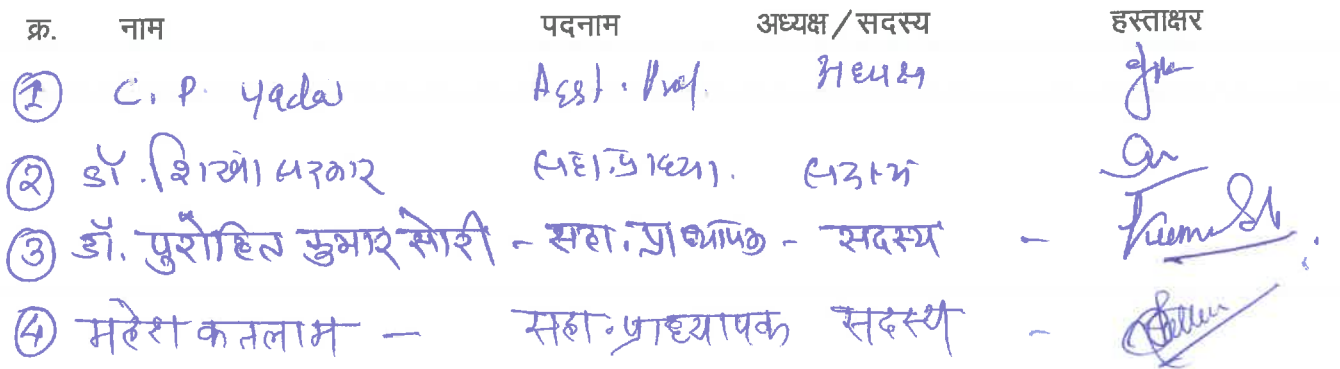 क्र. नाम पदनाम अध्यक्ष / सदस्य हस्ताक्षर
① C. P. Yadav Asst. Prof. अध्यक्ष
② डॉ. शिखा सरकार सहा.प्राध्या. सदस्य
③ डॉ. पुरोहित कुमार सोरी - सहा. प्राध्यापक - सदस्य -
④ महेश कतलाम - सहा. प्राध्यापक सदस्य -